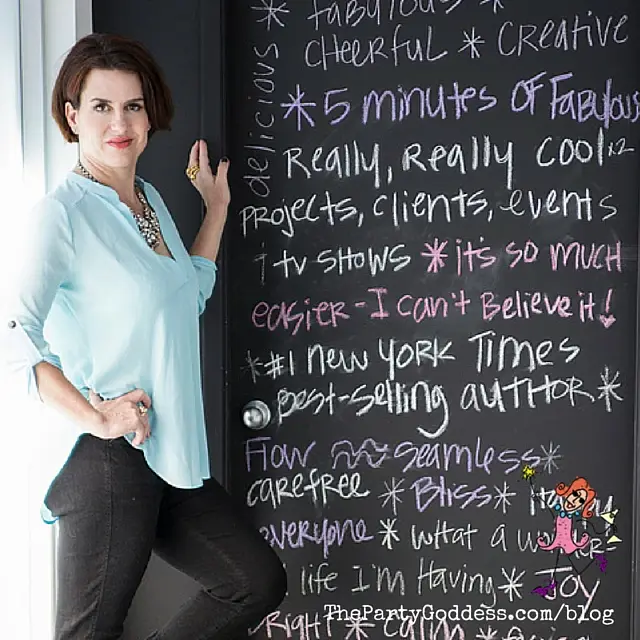 delicious *
fabulous *
CHEERFUL * CREATIVE
*5 minutes OF FABULOUS
REALLY, REALLY COOL x2
PROJECTS, clients, events
+ tv SHOWS * it's so much
easier - I can't Believe it!
*#1 new YORK Times
Best-selling AUTHOR *
Flow seamless *
carefree * Bliss *
everyone * WHAT A
life I'm Having * JOY
RIGHT * calm *
ThePartyGoddess.com/blog